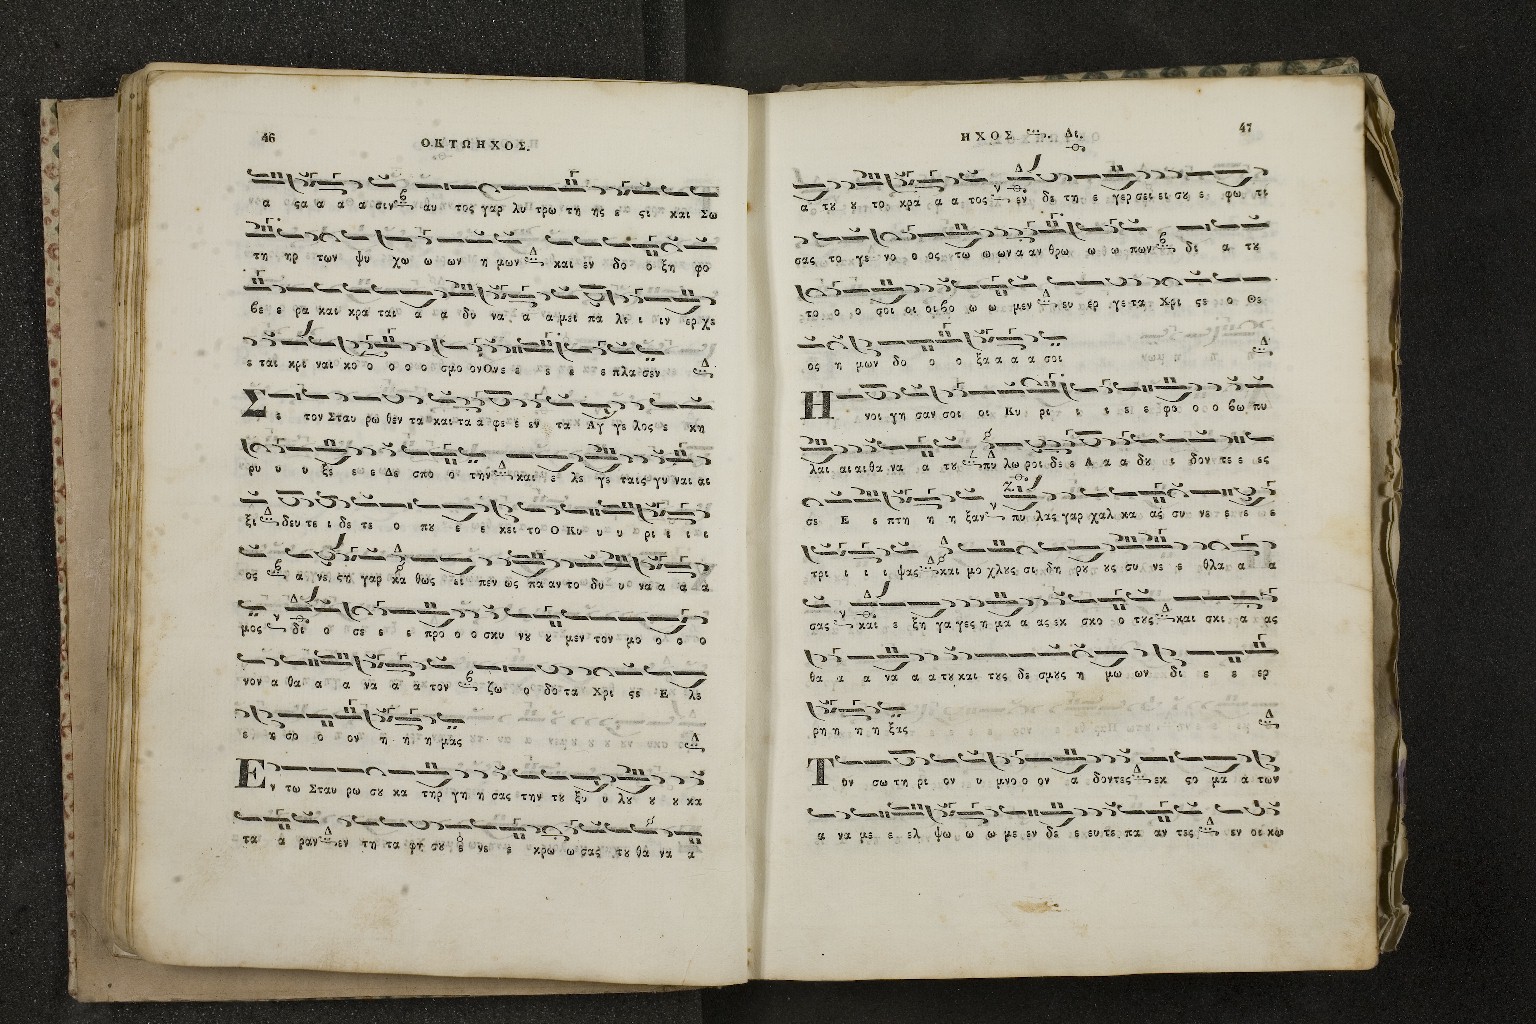 46
ΟΚΤΩΗΧΟΣ.
α ϛα α α α σιν αυ τος γαρ λυ τρω τη ης ε ϛι και Σω
τη ηρ των ψυ χω ω ων η μων και εν δο ο ξη φο
βε ε ρα και κρα ται α α δυ να α α μει πα λι ι ιν ερ χε
ε ται κρι ναι κο ο ο ο ο σμο ον Ον ε ε ε ε ε ε πλα σεν
Σ ε τον Σταυ ρω θεν τα και τα α φε ε εν τα Αγ γε λος ε κη
ρυ υ υ ξε ε ε Δε σπο ο την και ε λε γε ταις γυ ναι αι
ξι δευ τε ι δε τε ο πȣ ε ε κει το Ο Κυ υ υ ρι ι ι ι
ος α νε ϛη γαρ κα θως ει πεν ως πα αν το δυ υ να α α α
μος δι ο σε ε ε προ ο ο σκυ νȣ ȣ μεν τον μο ο ο ο
νον α θα α α να α α τον ζω ο δο τα Χρι ϛε Ε λε
ε η σο ο ον η η η μας
Ε ν τω Σταυ ρω σȣ κα τηρ γη η σας την τȣ ξυ υ λȣ ȣ ȣ κα
τα α ραν εν τη τα φη σȣ ε νε ε κρω ω σας τȣ θα να α
47
ΗΧΟΣ Δι.
α τȣ ȣ το κρα α α τος εν δε τη ε γερ σει ει σȣ ε φω τι
σας το γε νο ο ος τω ω ων α αν θρω ω ω ω πων δι α τȣ
το ο ο σοι οι οι βο ω ω μεν ευ ερ γε τα Χρι ϛε ο Θε
ος η μων δο ο ο ξα α α α σοι
Η νοι γη σαν σοι οι Κυ ρι ι ι ε ε ε φο ο ο βω πυ
λαι αι αι θα να α τȣ πυ λω ροι δε ε Α α α δȣ ι δον τε ε ες
σε Ε ε πτη η η ξαν πυ λας γαρ χαλ κα ας συ νε ε ε ε
τρι ι ι ι ψας και μο χλȣς σι δη ρȣ ȣς συ νε ε θλα α α
σας και ε ξη γα γες η μα α ας εκ σκο ο τȣς και σκι α ας
θα α α να α α τȣ και τȣς δε σμȣς η μω ων δι ε ε ερ
ρη η η η ξας
Τ ον σω τη ρι ον υ μνο ο ον α δοντες εκ ϛο μα α των
α να με ε ελ ψω ω ω με εν δε ε ευ τε πα αν τες εν οι κω